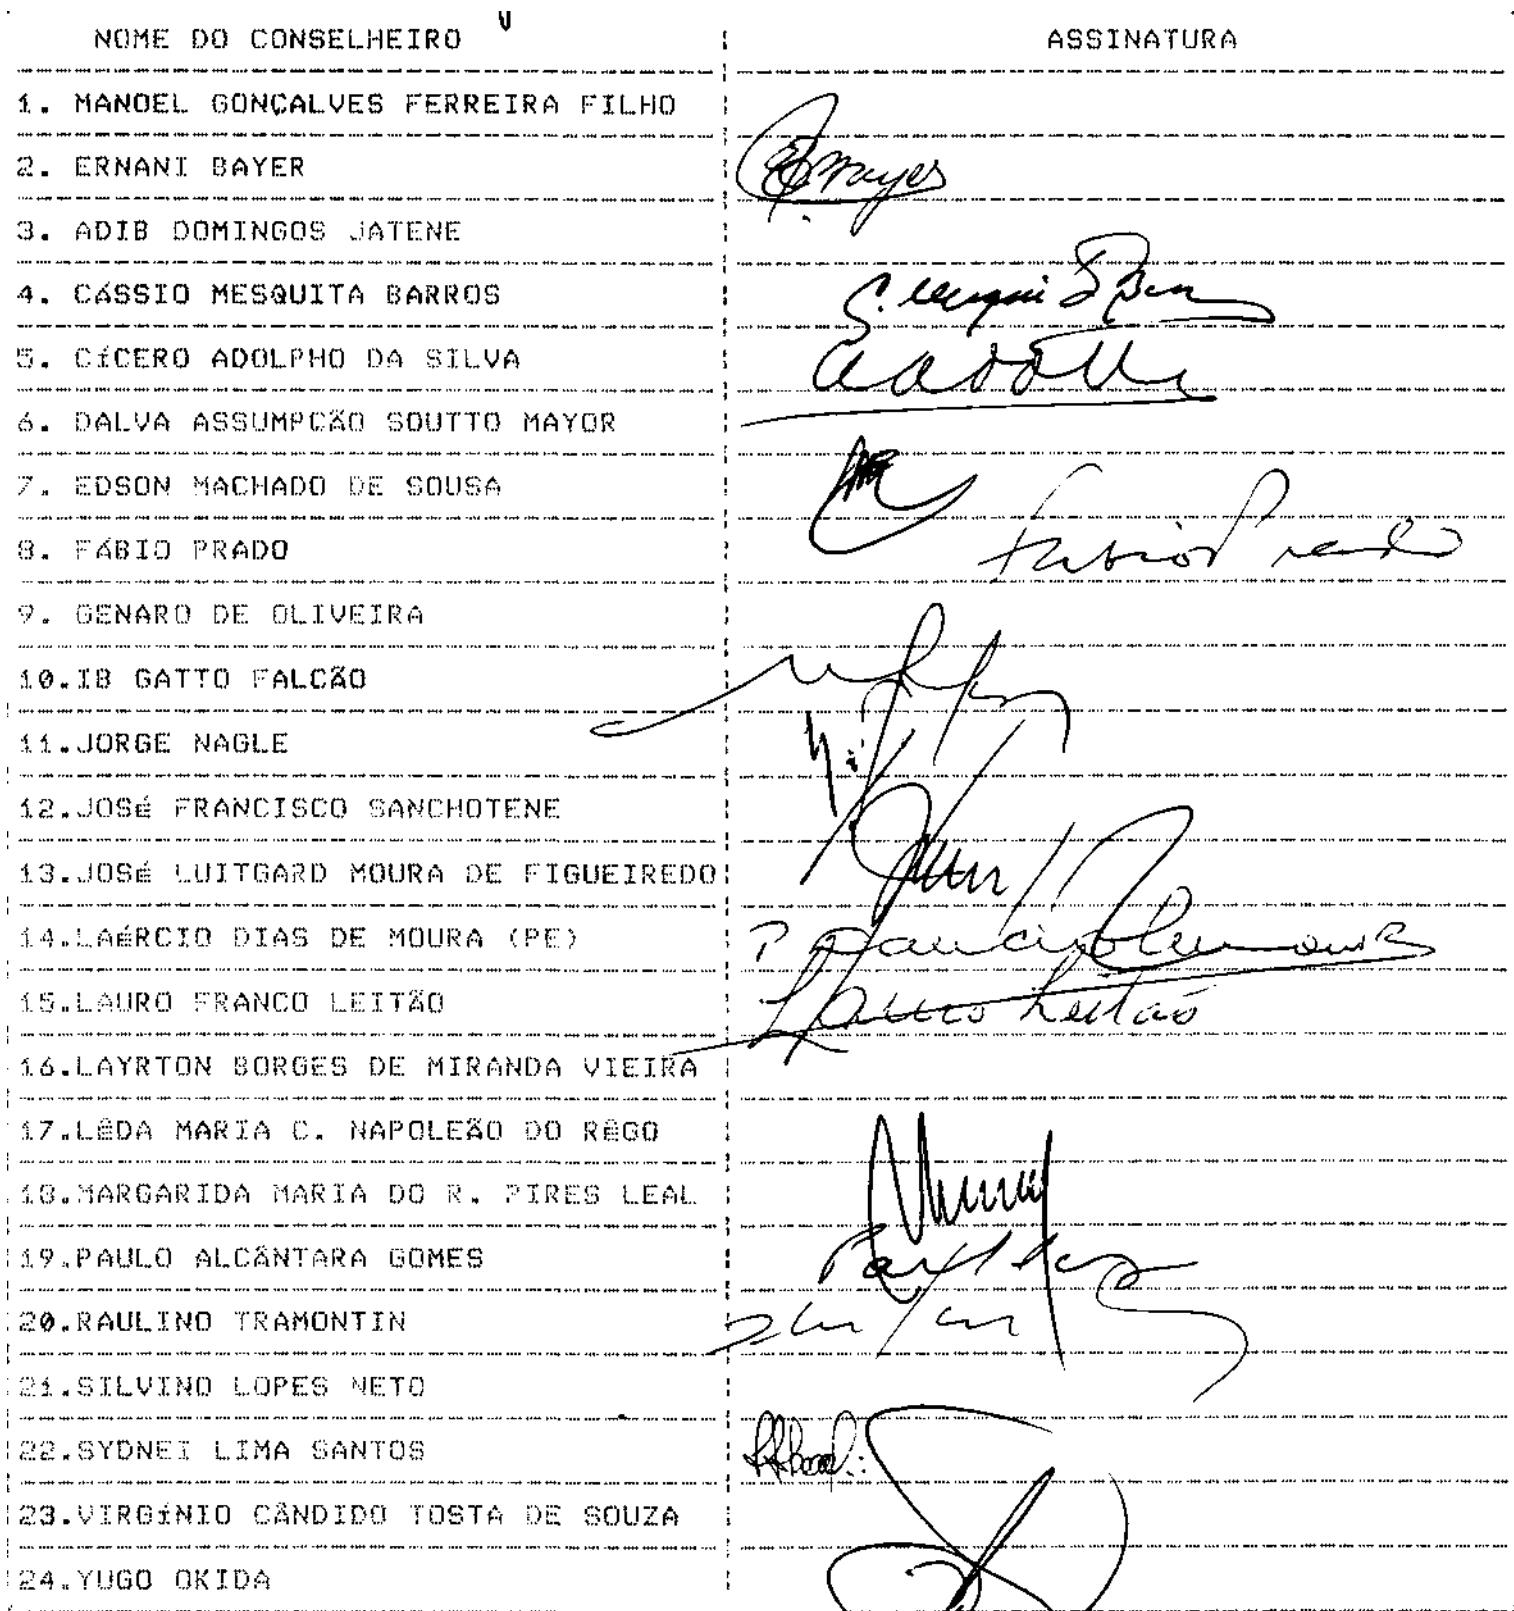 NOME DO CONSELHEIRO ASSINATURA
1. MANOEL GONÇALVES FERREIRA FILHO
2. ERNANI BAYER
3. ADIB DOMINGOS JATENE
4. CÁSSIO MESQUITA BARROS
5. CÍCERO ADOLPHO DA SILVA
6. DALVA ASSUMPCÃO SOUTTO MAYOR
7. EDSON MACHADO DE SOUSA
8. FÁBIO PRADO Fabio Prado
9. GENARO DE OLIVEIRA
10.IB GATTO FALCÃO
11.JORGE NAGLE
12.JOSÉ FRANCISCO SANCHOTENE
13.JOSÉ LUITGARD MOURA DE FIGUEIREDO
14.LAÉRCIO DIAS DE MOURA (PE)
15.LAURO FRANCO LEITÃO Lauro Leitão
16.LAYRTON BORGES DE MIRANDA VIEIRA
17.LÊDA MARIA C. NAPOLEÃO DO RÊGO
18.MARGARIDA MARIA DO R. PIRES LEAL
19.PAULO ALCÂNTARA GOMES
20.RAULINO TRAMONTIN
21.SILVINO LOPES NETO
22.SYDNEI LIMA SANTOS
23.VIRGÍNIO CÂNDIDO TOSTA DE SOUZA
24.YUGO OKIDA